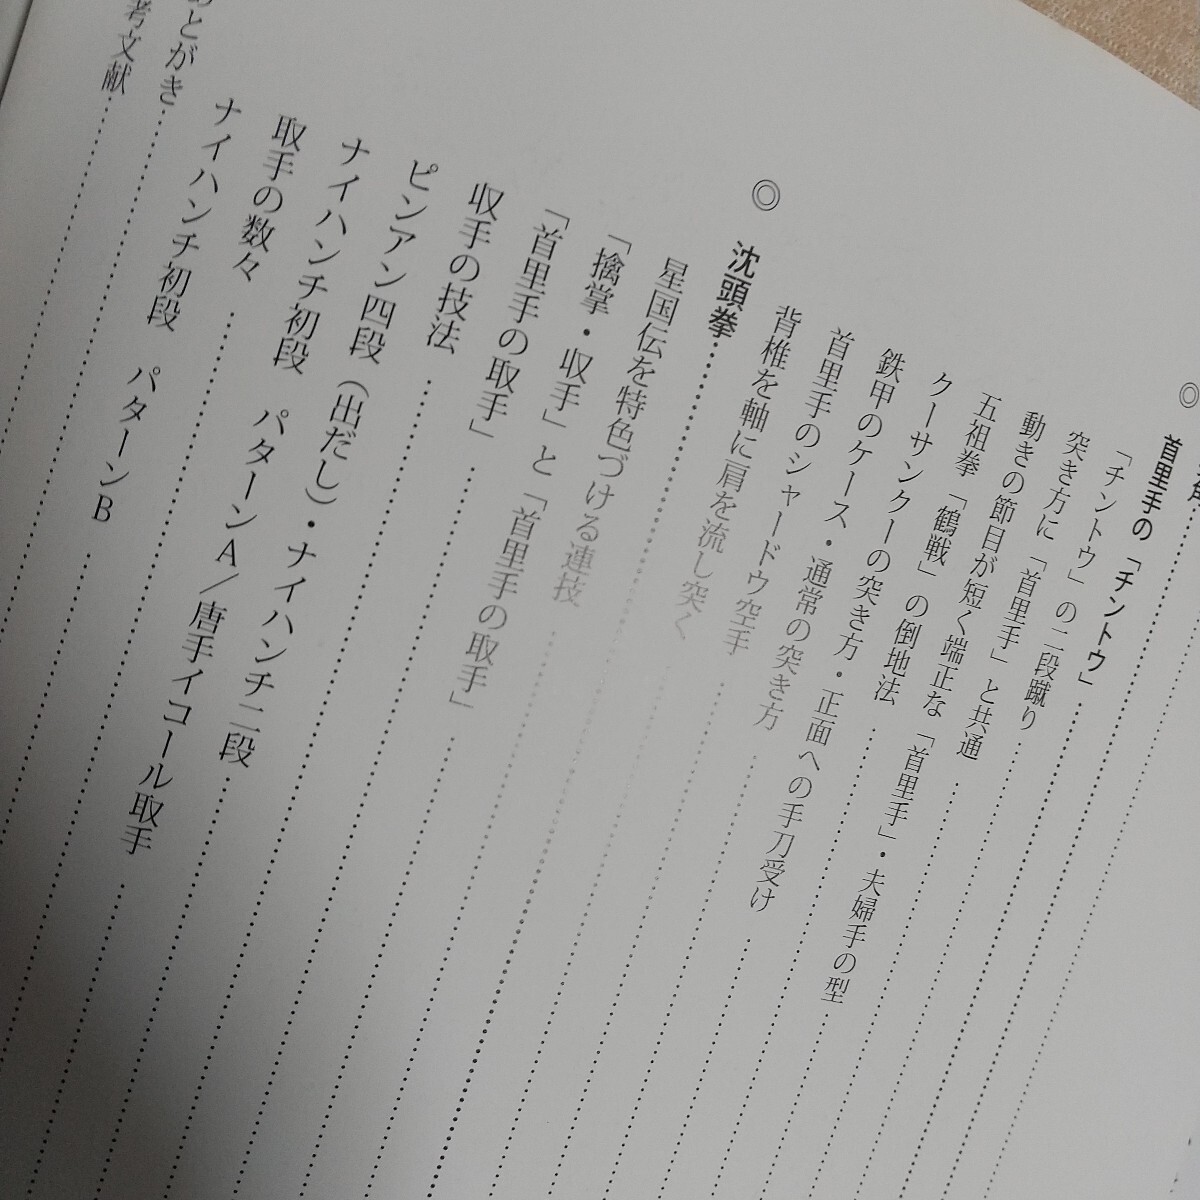 ◎ 首里手の「チントウ」
「チントウ」の二段蹴り
突き方に「首里手」と共通
動きの節目が短く端正な「首里手」・夫婦手の型
五祖拳「鶴戦」の倒地法
クーサンクーの突き方・正面への手刀受け
鉄甲のケース・通常の突き方
首里手のシャードウ空手
背椎を軸に肩を流し突く
◎ 沈頭拳
星国伝を特色づける連技
「擒掌・収手」と「首里手の取手」
「首里手の取手」
収手の技法
ピンアン四段（出だし）・ナイハンチ二段
ナイハンチ初段 パターンA／唐手イコール取手
取手の数々
ナイハンチ初段 パターンB
あとがき
考文献